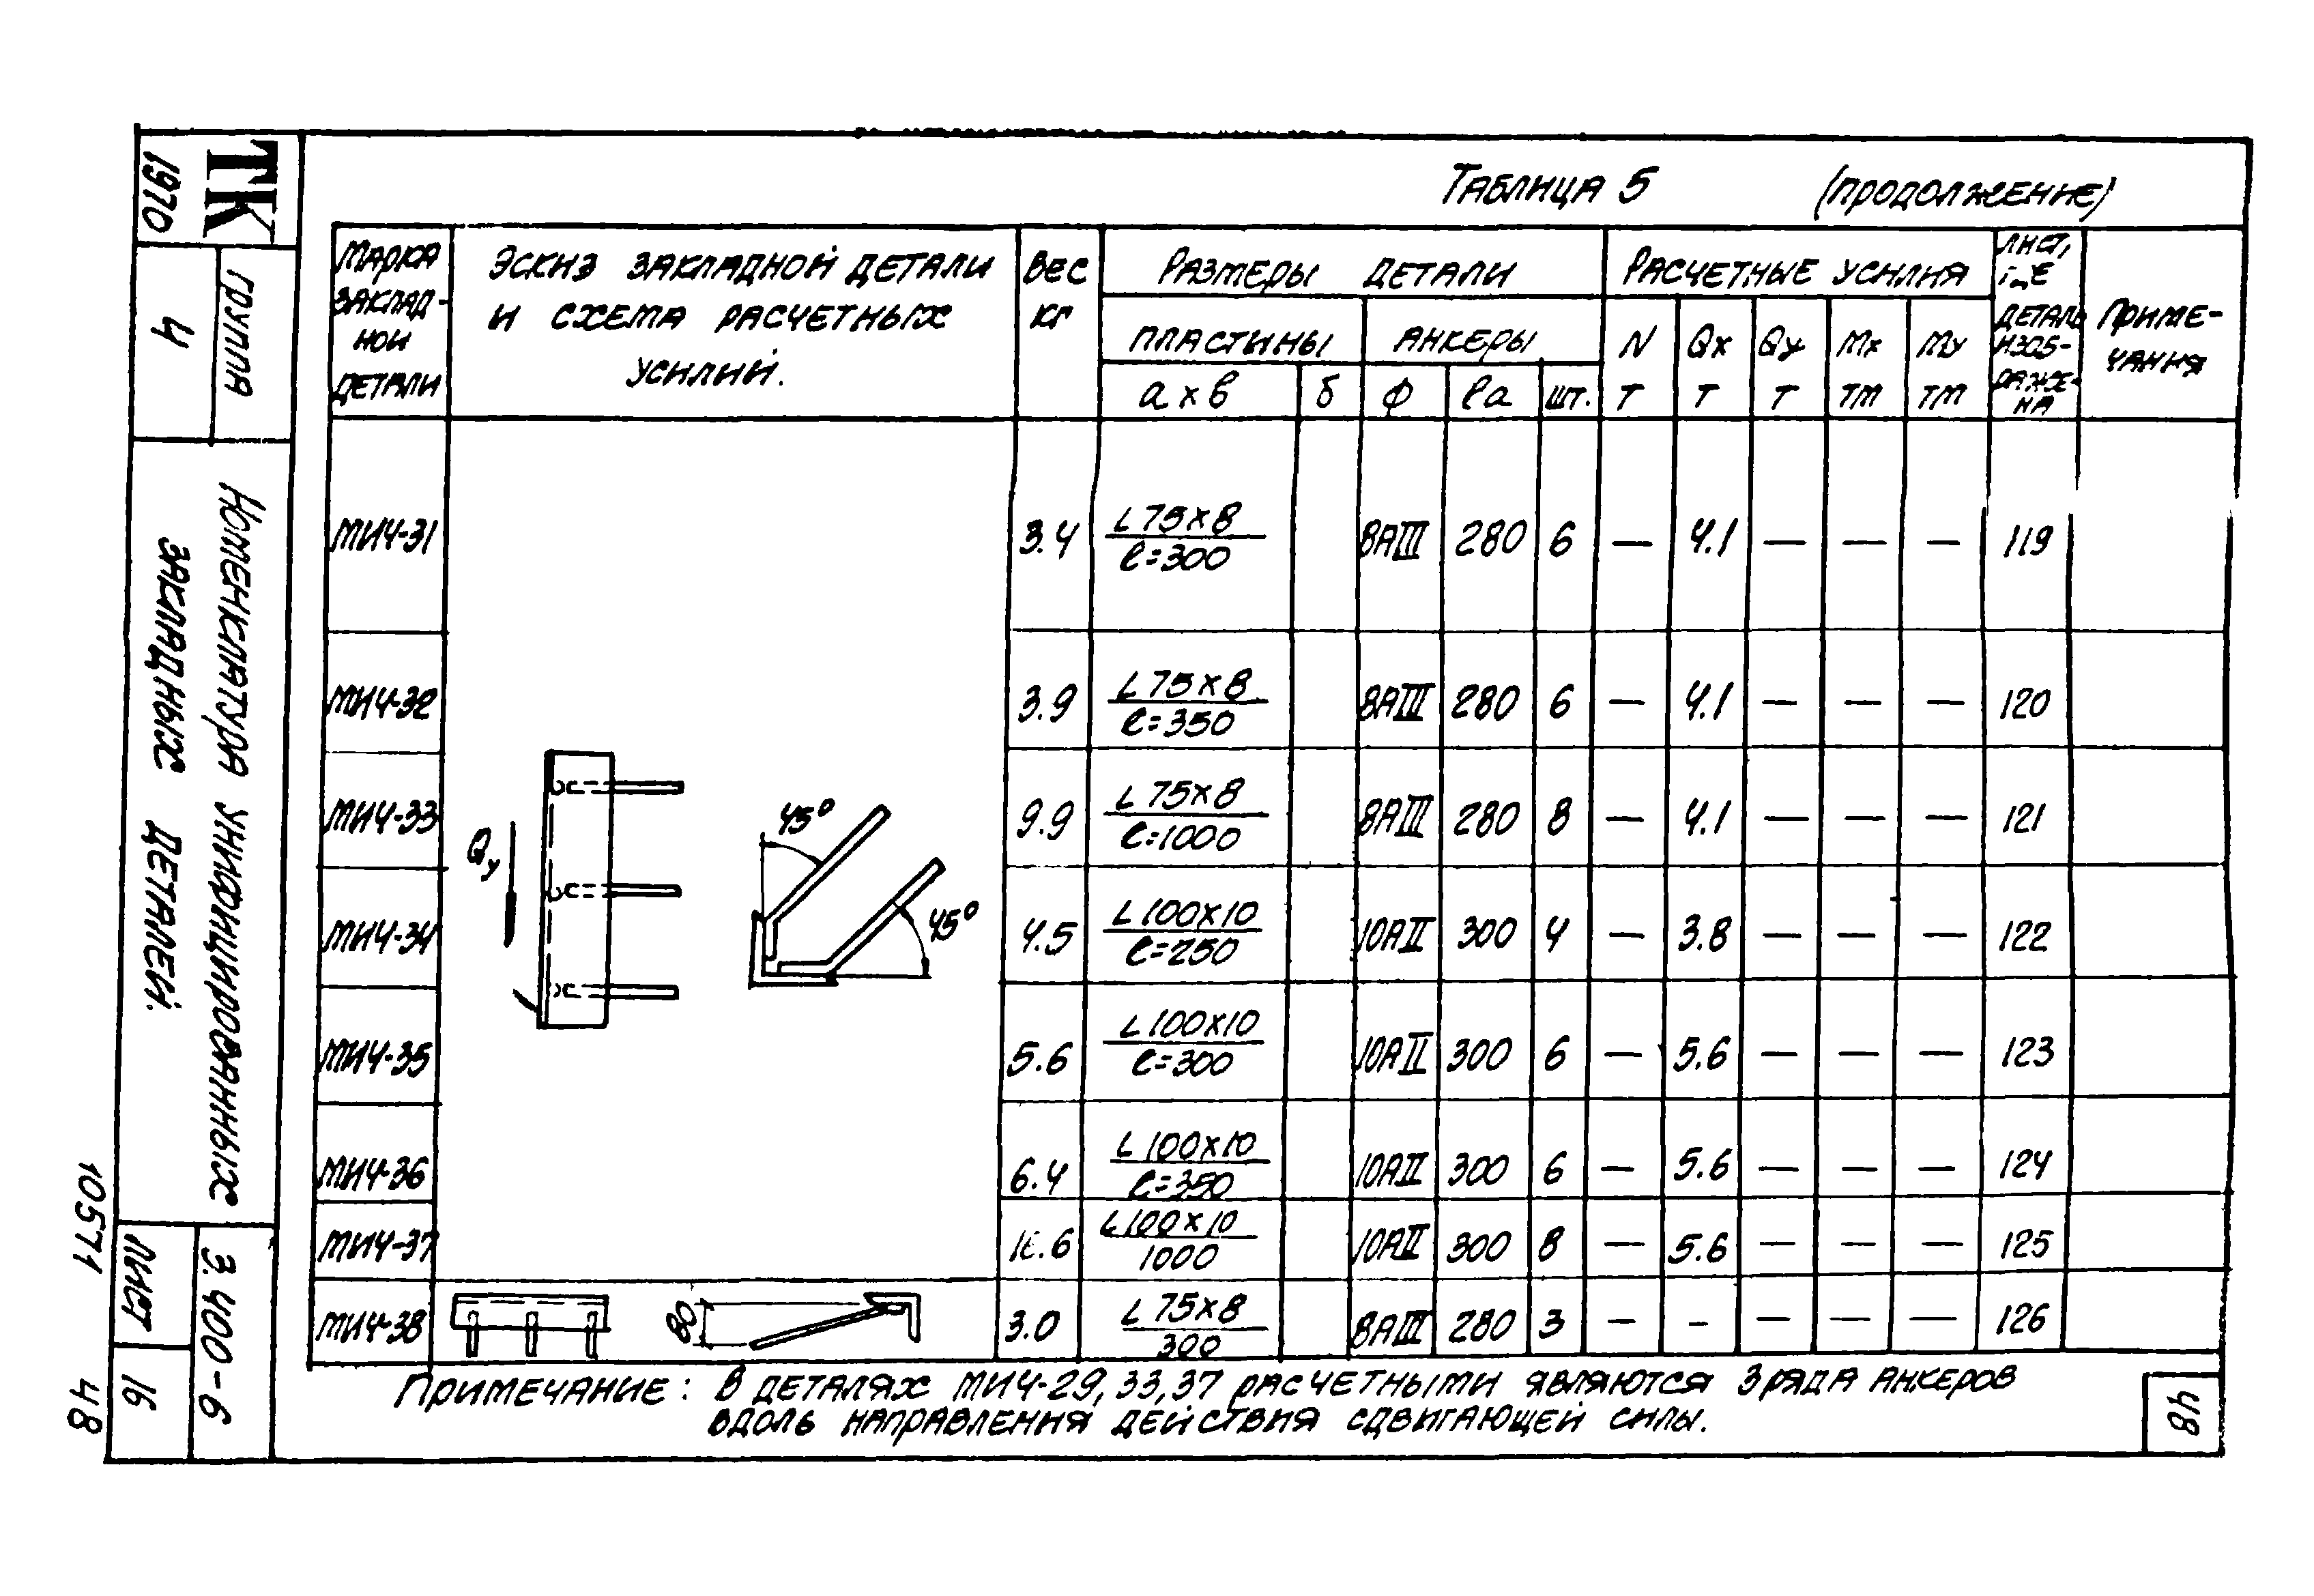 ТК
1970
группа
4
Номенклатура унифицированных
закладных деталей.
3.400-6
Лист
16
10571 48
Таблица 5 (продолжение)
Марка
заклад-
ной
детали
Эскиз закладной детали
и схема расчетных
усилий.
Вес
кг
Размеры детали
пластины
а х в
б
анкеры
ф
ℓа
шт.
Расчетные усилия
N
т
Qx
т
Qy
т
Мх
тм
Му
тм
деталь
изоб-
раже-
на
Приме-
чания
МИ4-31 3.4 L 75х8 ℓ=300 8АIII 280 6 — 4.1 — — — 119
МИ4-32 3.9 L 75х8 ℓ=350 8АIII 280 6 — 4.1 — — — 120
МИ4-33 9.9 L 75х8 ℓ=1000 8АIII 280 8 — 4.1 — — — 121
МИ4-34 4.5 L 100х10 ℓ=250 10АII 300 4 — 3.8 — — — 122
МИ4-35 5.6 L 100х10 ℓ=300 10АII 300 6 — 5.6 — — — 123
МИ4-36 6.4 L 100х10 ℓ=350 10АII 300 6 — 5.6 — — — 124
МИ4-37 L 100х10 1000 10АII 300 8 — 5.6 — — — 125
МИ4-38 3.0 L 75х8 300 8АIII 280 3 — - — — — 126
Qy
45°
45°
80
Примечание: В деталях МИ4-29,33,37 расчетными являются 3 ряда анкеров
вдоль направления действия сдвигающей силы.
48